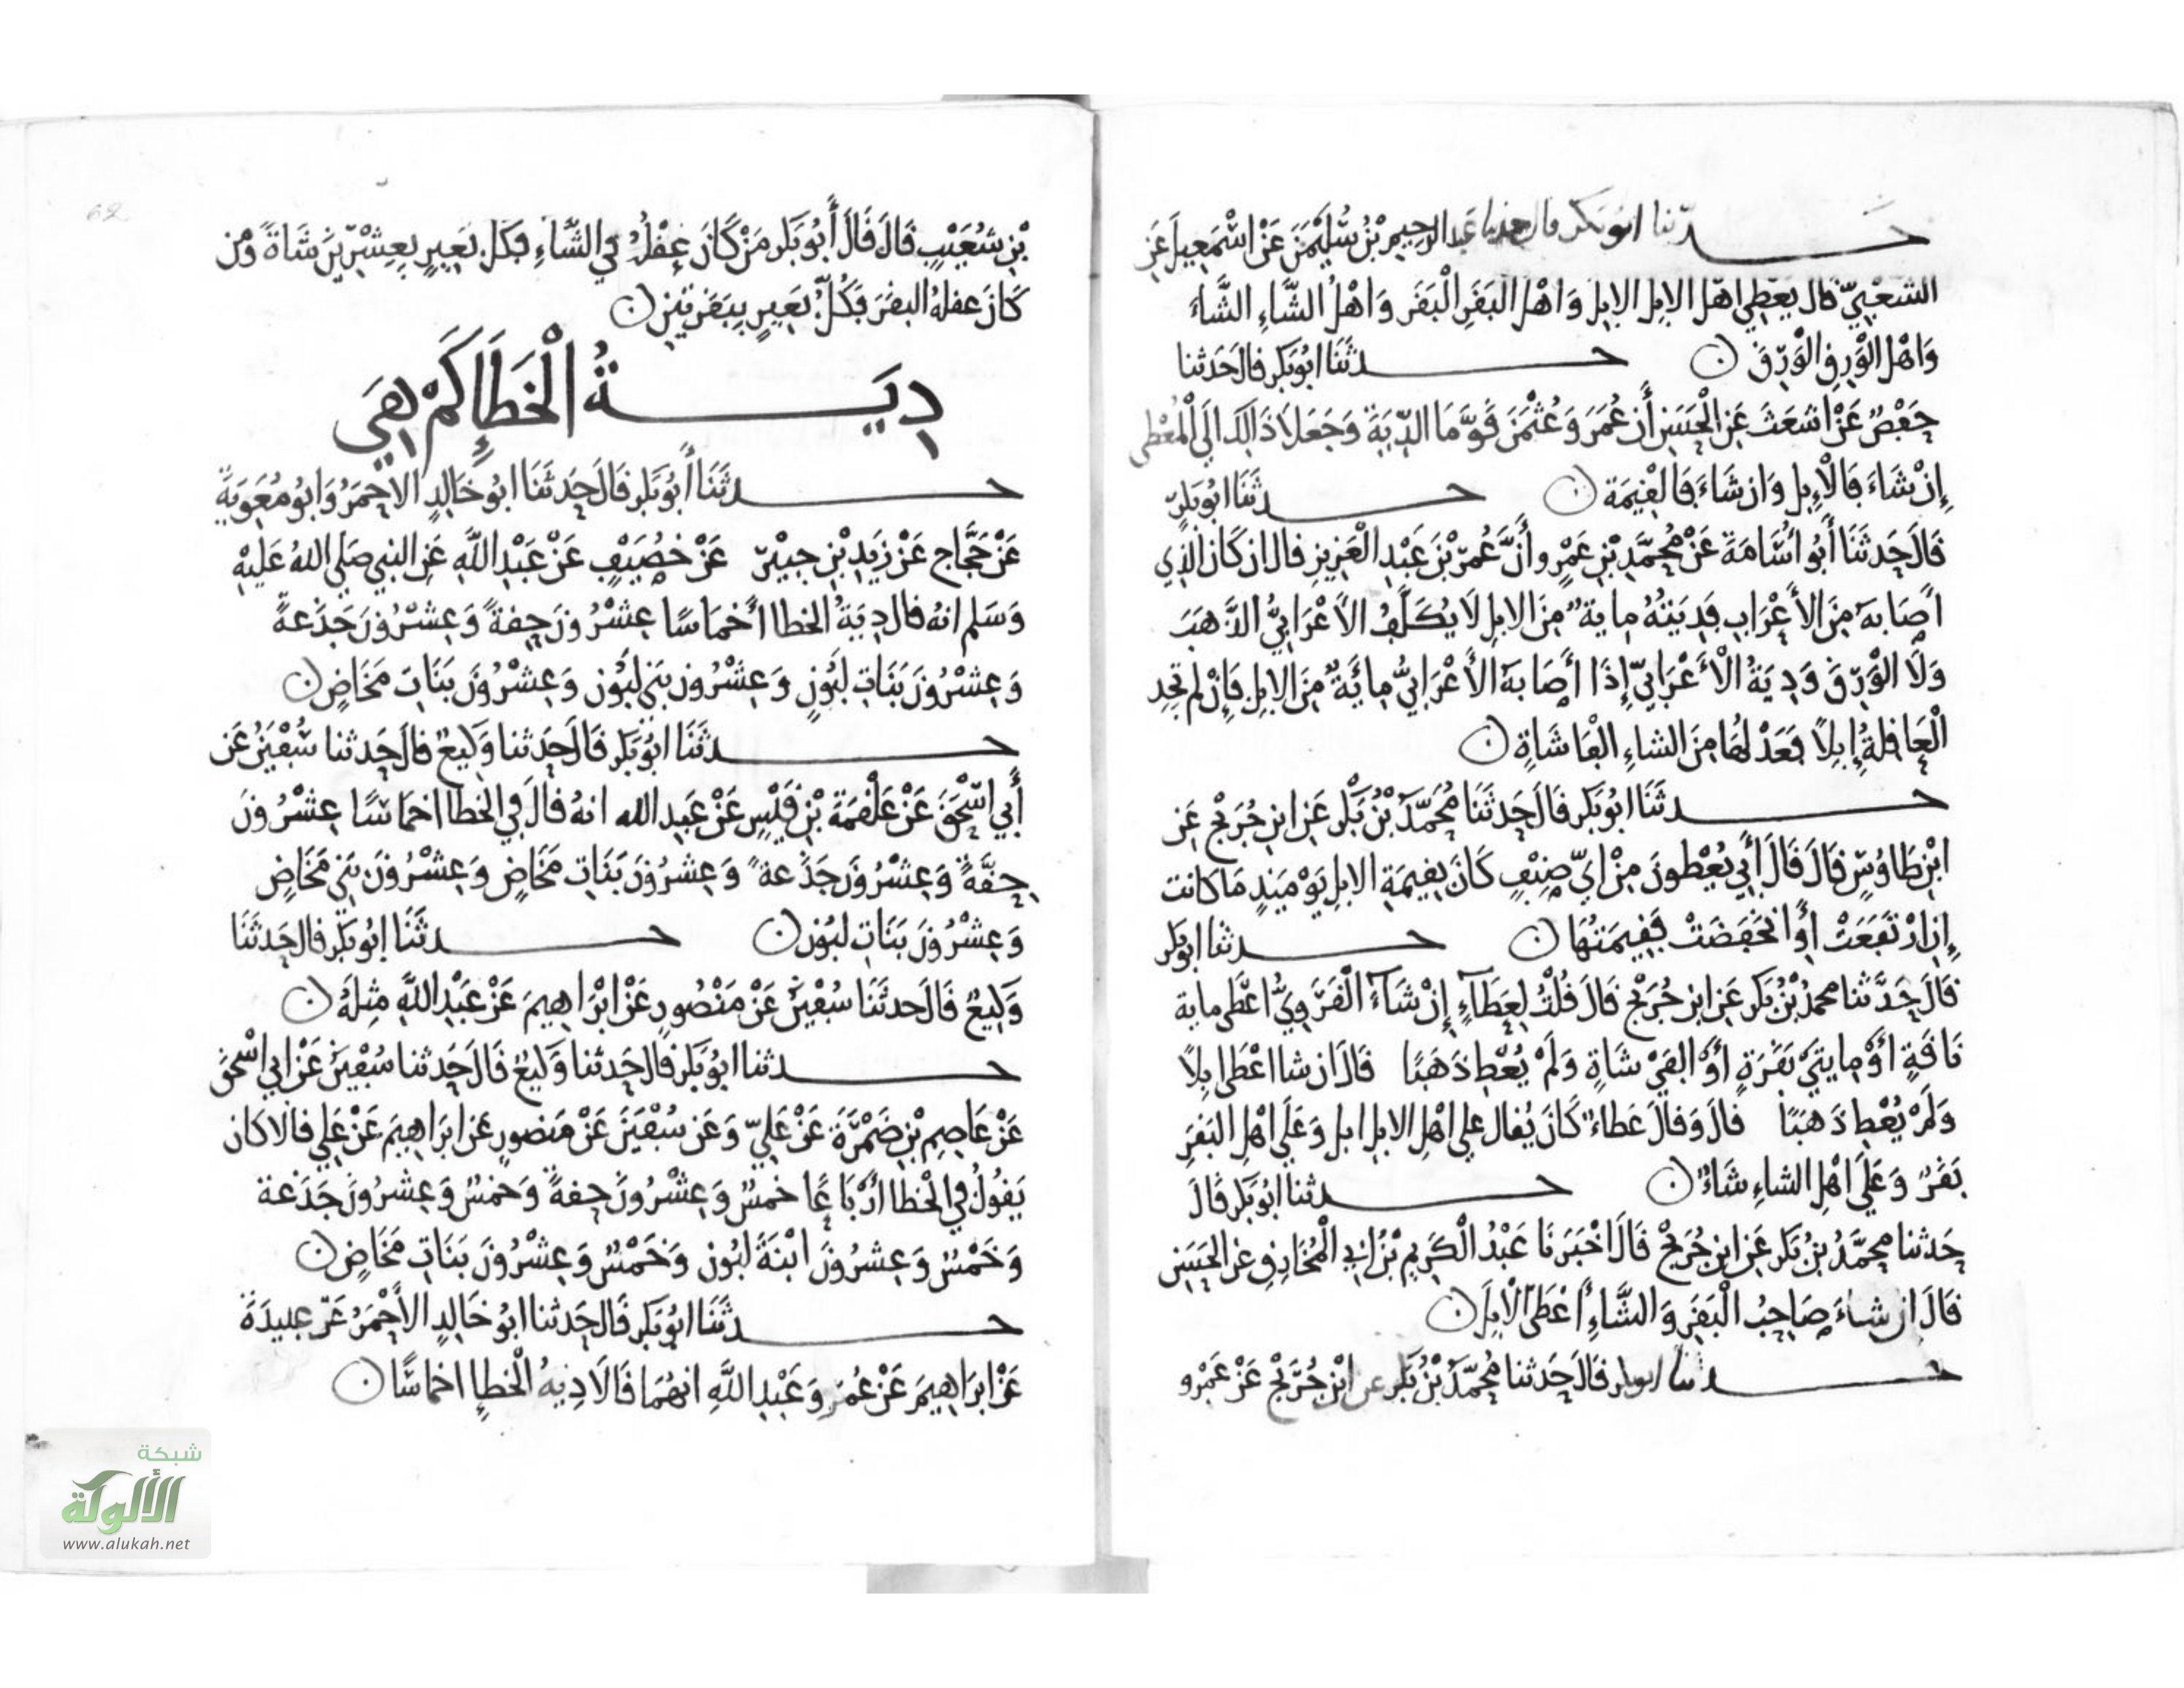 حدثنا ابو بكر قال حدثنا عبد الرحيم بْن سُلَيْمَنَ عَنْ اسْمَعِيلَ عَنِ
الشعْبِيّ قال يعْطِي اهْل الابِل الابِل وَاهْل البَقَرِ الْبَقَر وَاهْلُ الشَّاءِ الشَّاءَ
وَاهْل الوَرِق الوَرِقَ ۞
حدثَنَا ابُو بَكر قالَ حَدثنا
حَفْصٌ عَنْ اشعَثَ عَنِ الْحَسَنِ أن عُمَرَ وَعُثْمَنَ قَوَّمَا الدِّيَةَ وَجَعَلَا ذَالِكَ الَى الْمُعْطِي
إِنْ شَاءَ فَالْاِبِل وَان شَاءَ فَالقِيمَة ۞
حدثَنَا ابُو بَكر
قَالَ حَدثَنَا أَبُو اُسَامَةَ عَنْ مُحَمَّدِ بْنِ عَمْرٍو أَنَّ عُمَرَ بْنَ عَبْدِ الْعَزِيزِ قال ان كَانَ الَّذِي
أَصَابَهُ مِنَ الأعْرَابِ فَدِيَتُهُ مِايةٌ مِنَ الابِلِ لَا يُكَلَّفُ الأعْرَابِيُّ الذَّهَبَ
وَلَا الْوَرِقَ وَدِيَةُ الْأعْرَابِيّ إِذَا أَصَابَهُ الأعْرَابِيُّ مِائَةٌ مِنَ الابِلِ فَإِنْ لم تجد
الْعَاقِلَةُ إِبِلًا فَعَدْلهَا مِنَ الشاءِ الْفَا شَاةٍ ۞
حدثَنَا ابُو بَكر قَالَ حَدثَنَا مُحَمَّدُ بْنُ بَكْر عَنِ ابنِ جُرَيْج عَنِ
ابْنِ طَاوُسٍ قَالَ قَالَ أَبِي يُعْطونَ مِنْ ايّ صِنْفٍ كَانَ بِقِيمَةِ الابِلِ يَوْمَيذٍ مَا كانت
إِن ارْتَفَعَتْ أوْ انخَفَضَتْ فَقِيمَتُهَا ۞
حدثنا ابو بكر
قَالَ حَدَّثنا محمدُ بْنُ بَكر عَنِ ابن جُرَيْج قَالَ قُلْتُ لِعَطَآءٍ إِنْ شَآءَ الْقَرَوِيُّ اعْطى ماية
نَاقَةٍ اوْ مايتَيْ بَقَرَةٍ أوْ الفَيْ شَاةٍ وَلَمْ يُعْطِ ذَهَبًا قَالَ ان شا اعْطَى ابِلًا
وَلَمْ يُعْطِ ذَهَبًا قالَ وَقالَ عَطاءٌ كَانَ يُقالُ على اهْلِ الابِل ابل وَعَلَى اهْلِ البَقَر
بَقَرٌ وَعَلَى اهْلِ الشاءِ شَاءٌ ۞
حدثنا ابُو بَكر قَالَ
حَدثنا محمَّدُ بنُ بَكر عَنِ ابنِ جُرَيْج قَالَ اخْبَرَنَا عَبْدُ الْكَرِيمِ بْنُ ابِي الْمُخَارِقِ عن الحَسَنِ
قَالَ ان شاءَ صَاحِبُ الْبَقَرِ وَالشَّاءِ أعْطَى الْابِلَ ۞
حدثنا ابو بكر قَالَ حَدثنا مُحَمَّدُ بْنُ بَكر عن ابْن جُرَيْج عَنْ عَمْرو
بْنِ شعَيْبٍ قَالَ قَالَ أَبُو بَكر مَنْ كَانَ عقْلُهُ فِي الشَّاءِ فكلّ بَعِيرٍ بِعِشْرِينَ شَاةً وَمْن
كَانَ عقلهُ البقَرَ فكُلُّ بَعِيرٍ بِبَقَرَتَيْنِ ۞
دِيَةُ الْخَطَإِ كَمْ هِيَ
حدثَنَا أَبُو بَكر قَالَ حَدثَنَا ابُو خَالِدٍ الاحْمَرُ وَابُو مُعَوِيَةَ
عَنْ حَجَّاج عَنْ زَيدِ بْنِ جبيْر عَنْ خصَيفٍ عَنْ عَبْدِ اللَّهِ عَنِ النبي صَلى اللهُ عَلَيْهِ
وَسَلم انهُ قال دِيَةُ الخطا أخمَاسًا عِشْرُونَ حِقةً وَعِشْرُونَ جَذَعةً
وَعِشْرُونَ بَنَاتِ لَبُونٍ وَعِشْرُون بَنِي لَبُون وَعِشْرُونَ بَنَاتَ مَخَاضٍ ۞
حدثَنَا ابُو بَكر قَالَ حَدثنا وَكِيعٌ قالَ حَدثنا سُفْيَنُ عَن
أَبِي اسْحَقَ عَنْ عَلْقمَةَ بْنِ قَيْسٍ عَنْ عَبِد الله انهُ قالَ فِي الْخطا اخمَاسًا عِشْرُونَ
حِقَّةً وَعِشْرُونَ جَذَعة وَعِشْرُونَ بَنَاتِ مَخَاضٍ وَعِشْرُونَ بَنِي مَخَاضٍ
وَعِشْرُونَ بَنَاتِ لبُون ۞
حدثَنَا ابُو بَكر قال حَدثَنَا
وَكِيعٌ قَالَ حدثَنَا سُفْيَنُ عَنْ مَنْصُورٍ عَنْ ابْرَاهِيمَ عَنْ عَبْدِ اللَّهِ مِثلهُ ۞
حدثنا ابُو بَكر قالَ حَدثنا وَكِيعٌ قَالَ حَدثنا سُفْيَنُ عَنْ ابي اسْحَقَ
عَنْ عَاصِمِ بْنِ ضَمْرَةَ عَنْ عَلِيّ وَعَن سُفْيَنَ عَنْ مَنصُورٍ عَن ابرَاهِيمَ عَنْ عَلِي قَالا كان
يَقُولُ فِي الْخطا ارْبَاعًا خمسٌ وَعِشْرُونَ حِقةً وَخمسٌ وَعِشرُونَ جَذَعة
وَخَمْسٌ وَعِشرُونَ ابْنَةَ لبُون وَخَمْسٌ وَعِشْرُونَ بَنَاتِ مَخَاضٍ ۞
حدثَنَا ابُو بَكر قَالَ حَدثنا ابُو خَالِدٍ الأحْمَرُ عَنْ عبيدَةَ
عَنْ ابرَاهِيمَ عَنْ عُمَرَ وَعَبْدِ اللَّهِ انهُمَا قَالَا دِيةُ الْخطإِ اخماسًا ۞
62
شبكة
الألوكة
www.alukah.net